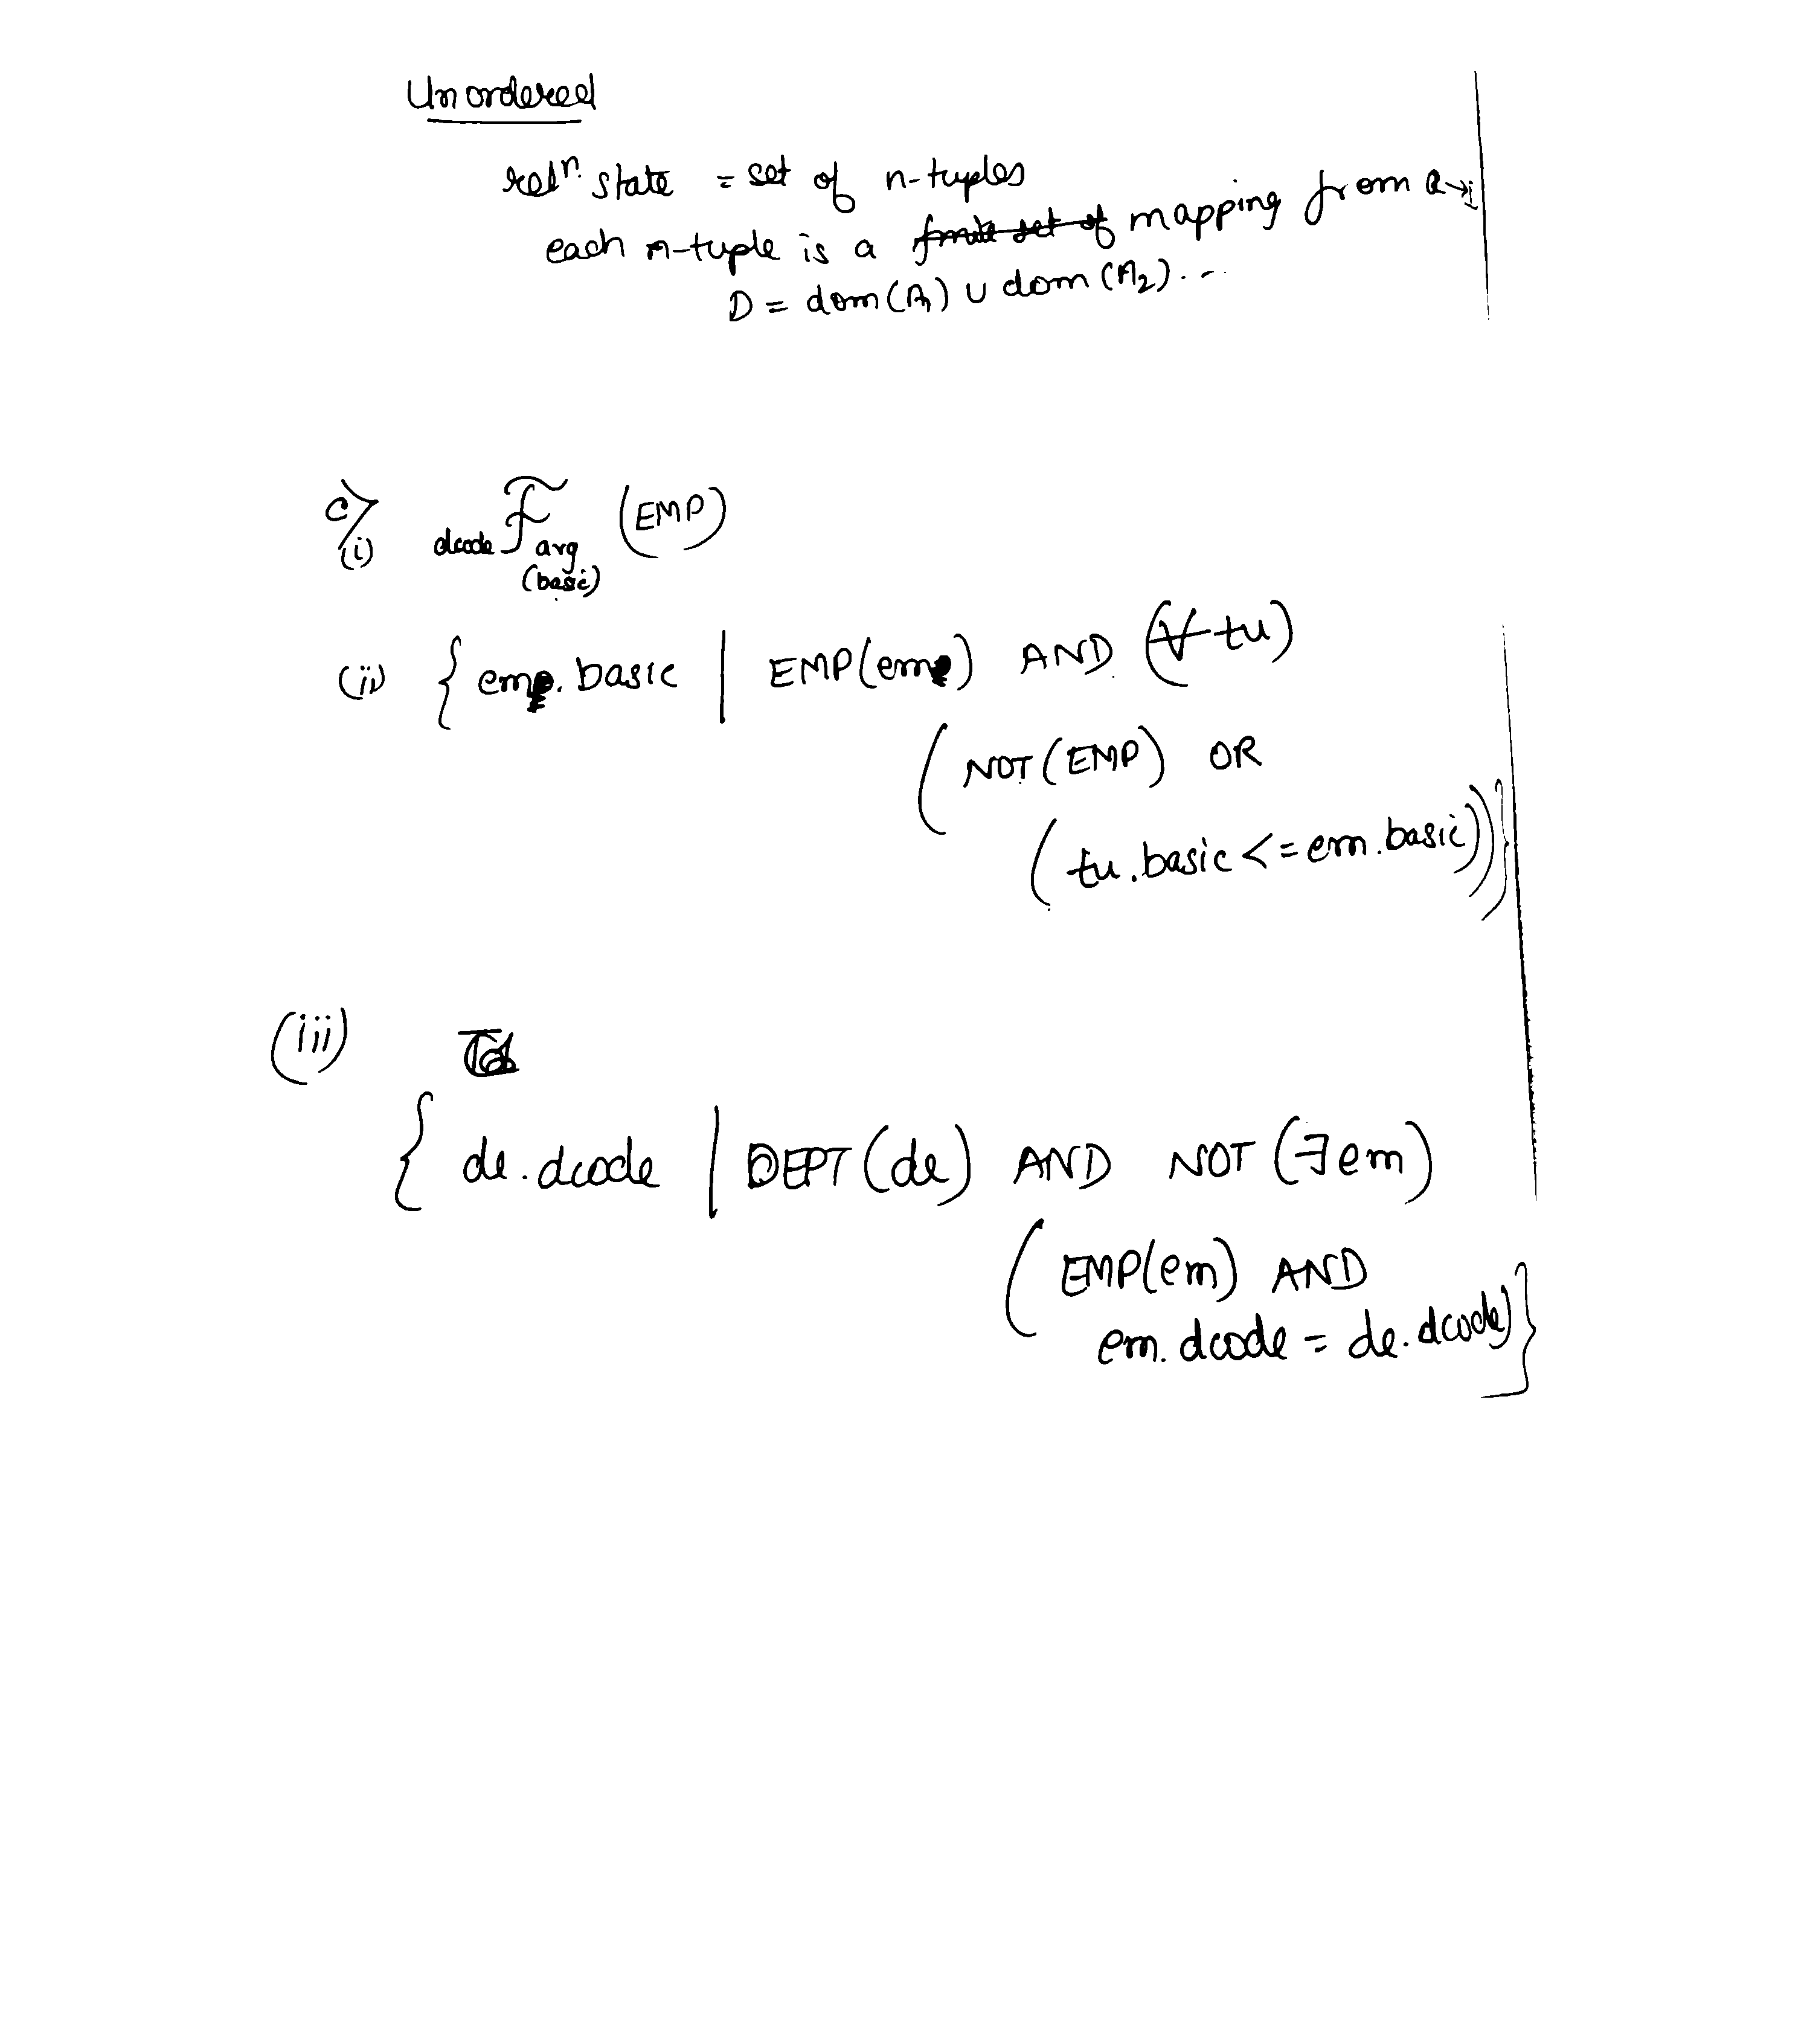 Unordered
relⁿ. state = set of n-tuples
each n-tuple is a mapping from R→
D = dom(A₁) ∪ dom(A₂)...
c)
(i) dcode ℱ avg (basic) (EMP)
(ii) { em.basic | EMP(em) AND (∀ tu)
( NOT(EMP) OR
( tu.basic <= em.basic))}
(iii)
{ de.dcode | DEPT(de) AND NOT (∃em)
( EMP(em) AND
em.dcode = de.dcode)}